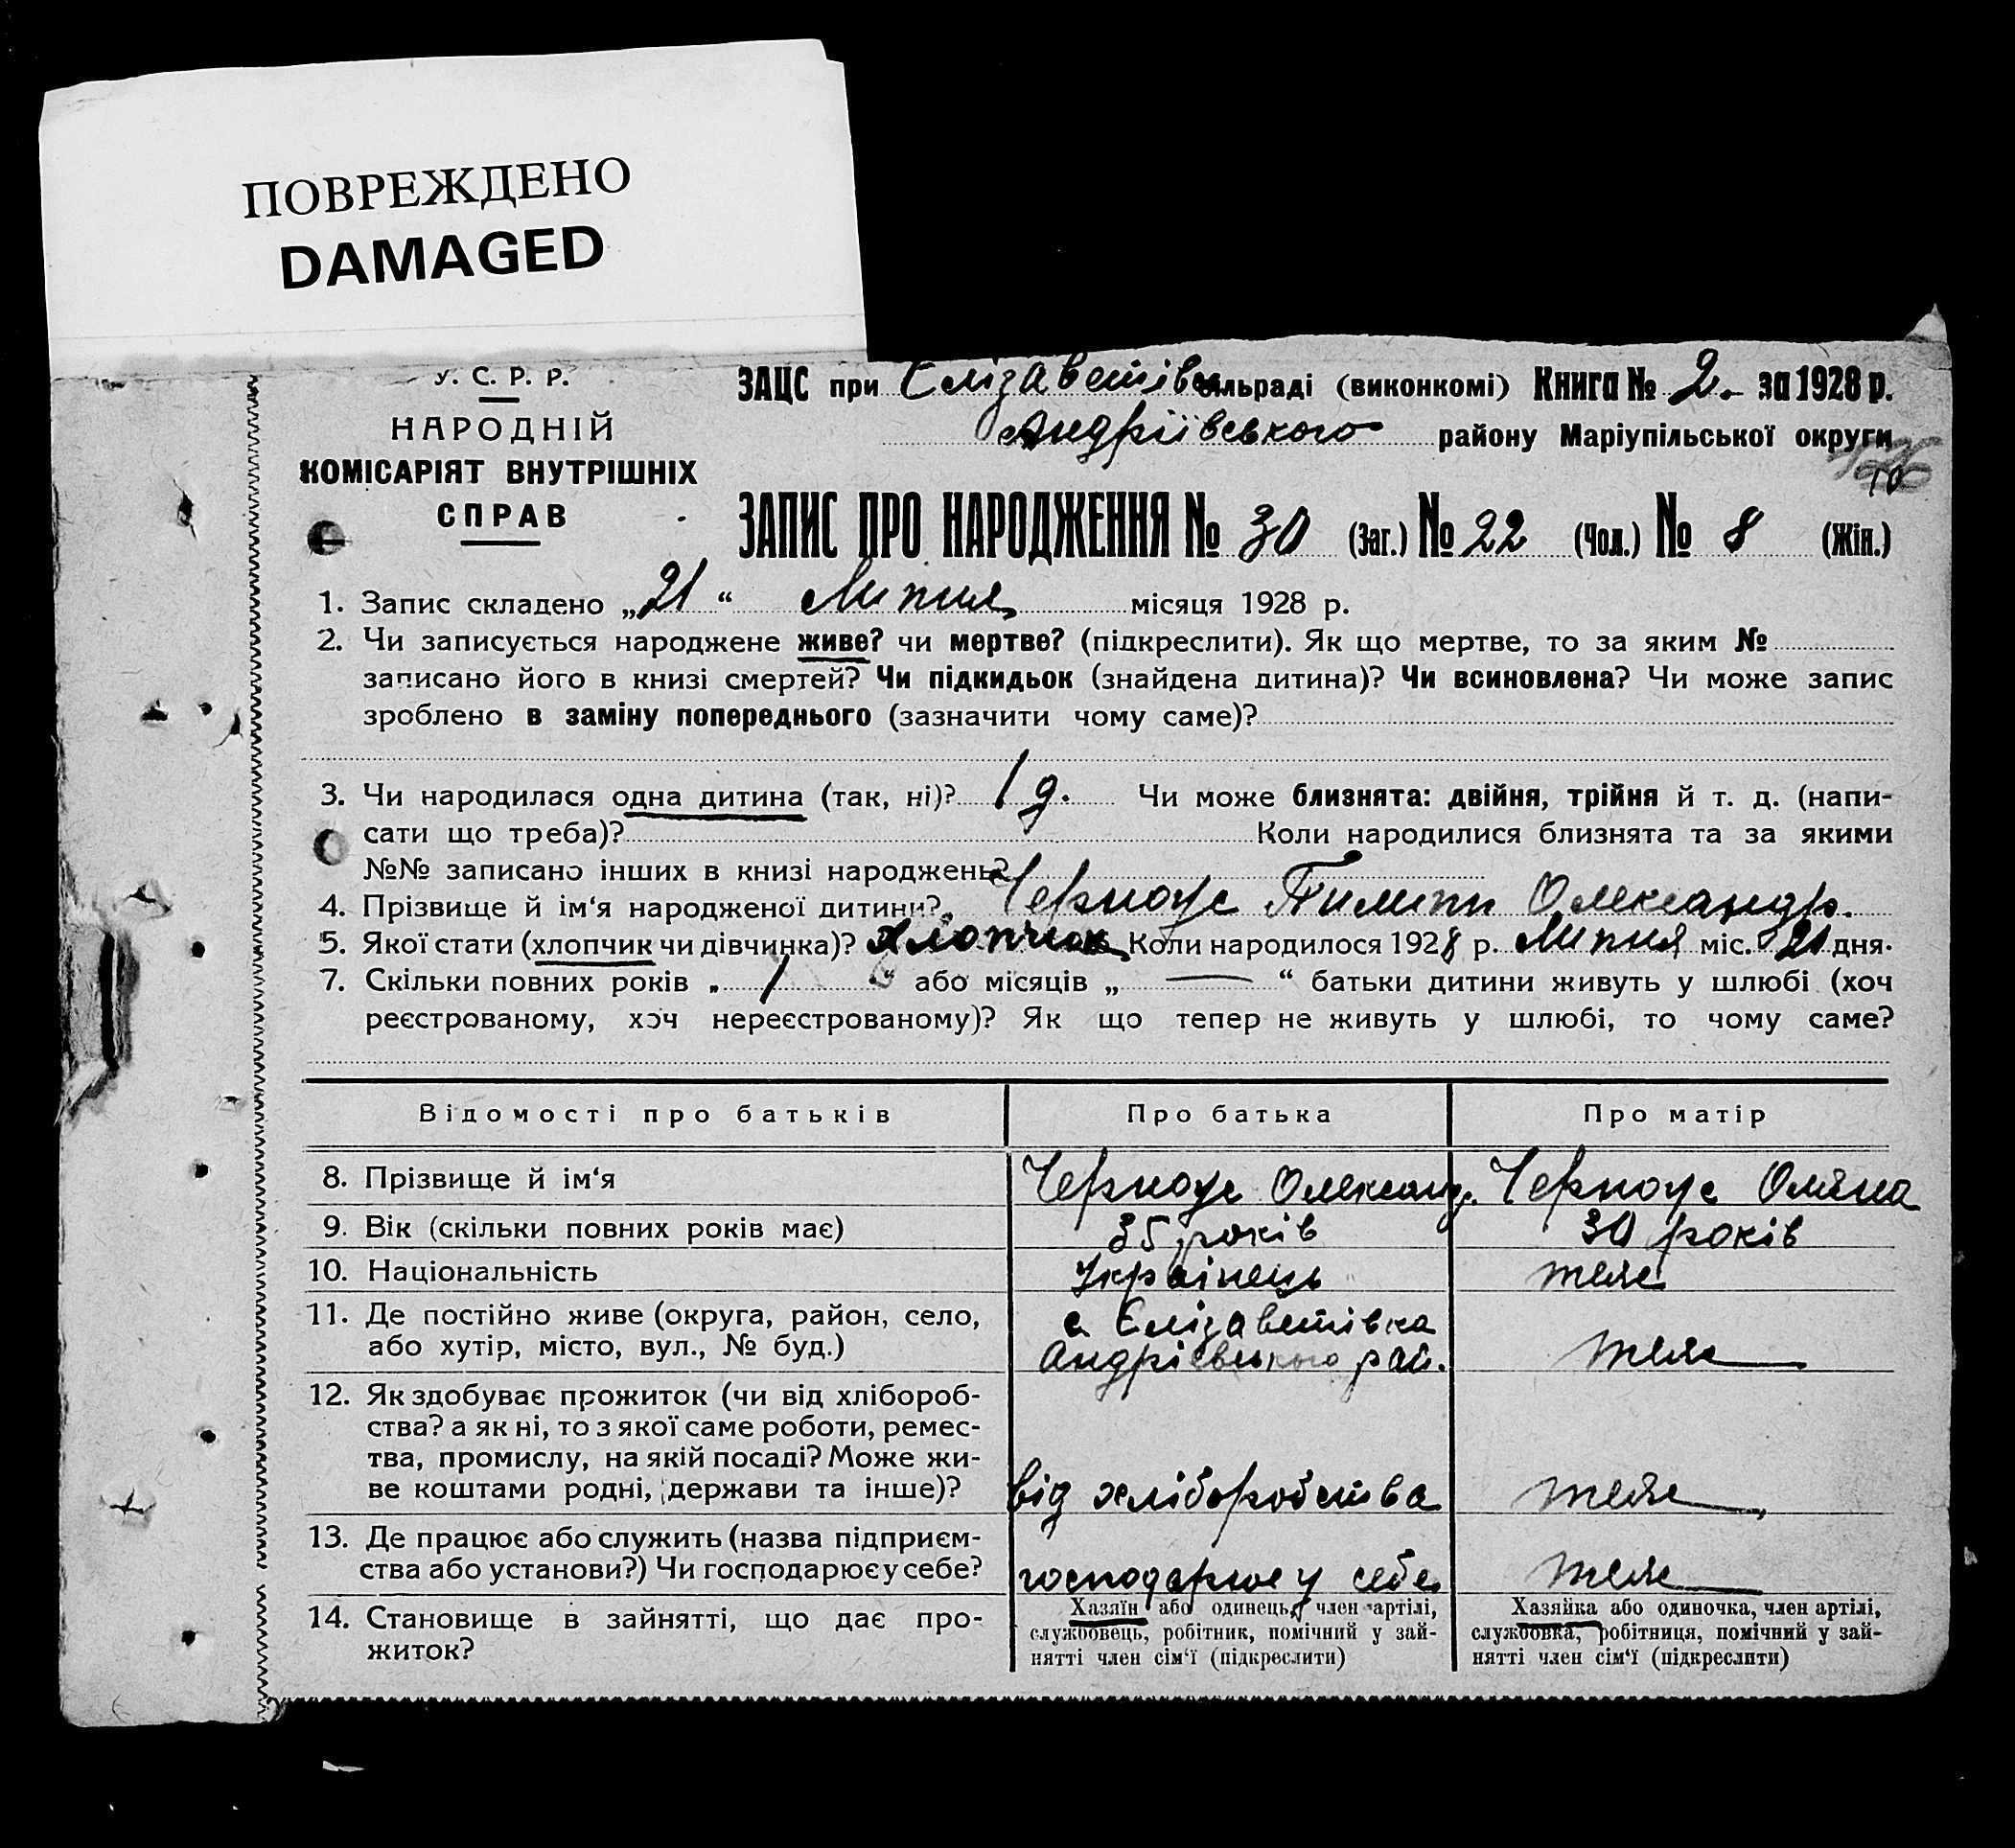 ПОВРЕЖДЕНО
DAMAGED
У. С. Р. Р.
НАРОДНІЙ
КОМІСАРІЯТ ВНУТРІШНІХ
СПРАВ
ЗАЦС при Єлізаветівс ільраді (виконкомі) Книга № 2. за 1928 р.
Андріївського району Маріупільської округи
ЗАПИС ПРО НАРОДЖЕННЯ № 30 (Заг.) № 22 (Чол.) № 8 (Жін.)
1. Запис складено „21“ Липня місяця 1928 р.
2. Чи записується народжене живе? чи мертве? (підкреслити). Як що мертве, то за яким №
записано його в книзі смертей? Чи підкидьок (знайдена дитина)? Чи всиновлена? Чи може запис
зроблено в заміну попереднього (зазначити чому саме)?
3. Чи народилася одна дитина (так, ні)? 1 д. Чи може близнята: двійня, трійня й т. д. (напи-
сати що треба)? Коли народилися близнята та за якими
№№ записано інших в книзі народжень?
4. Прізвище й ім‘я народженої дитини? Черноус Пилип Олександр.
5. Якої стати (хлопчик чи дівчинка)? хлопчик Коли народилося 1928 р. Липня міс. 21 дня.
7. Скільки повних років „ 1 “ або місяців „ — “ батьки дитини живуть у шлюбі (хоч
реєстрованому, хоч нереєстрованому)? Як що тепер не живуть у шлюбі, то чому саме?
Відомості про батьків Про батька Про матір
8. Прізвище й ім‘я Черноус Олександ. Черноус Оляна
9. Вік (скільки повних років має) 35 років 30 років
10. Національність Українець теж
11. Де постійно живе (округа, район, село,
або хутір, місто, вул., № буд.) с. Єлізаветівка
Андрієвського рай. теж
12. Як здобуває прожиток (чи від хлібороб-
ства? а як ні, то з якої саме роботи, ремес-
тва, промислу, на якій посаді? Може жи-
ве коштами родні, держави та інше)? від хліборобства теж
13. Де працює або служить (назва підприєм-
ства або установи?) Чи господарює у себе? господарює у себе теж
14. Становище в зайнятті, що дає про-
житок?
Хазяїн або одинець, член артілі,
службовець, робітник, помічний у зай-
нятті член сім‘ї (підкреслити)
Хазяйка або одиночка, член артілі,
службовка, робітниця, помічний у зай-
нятті член сім‘ї (підкреслити)